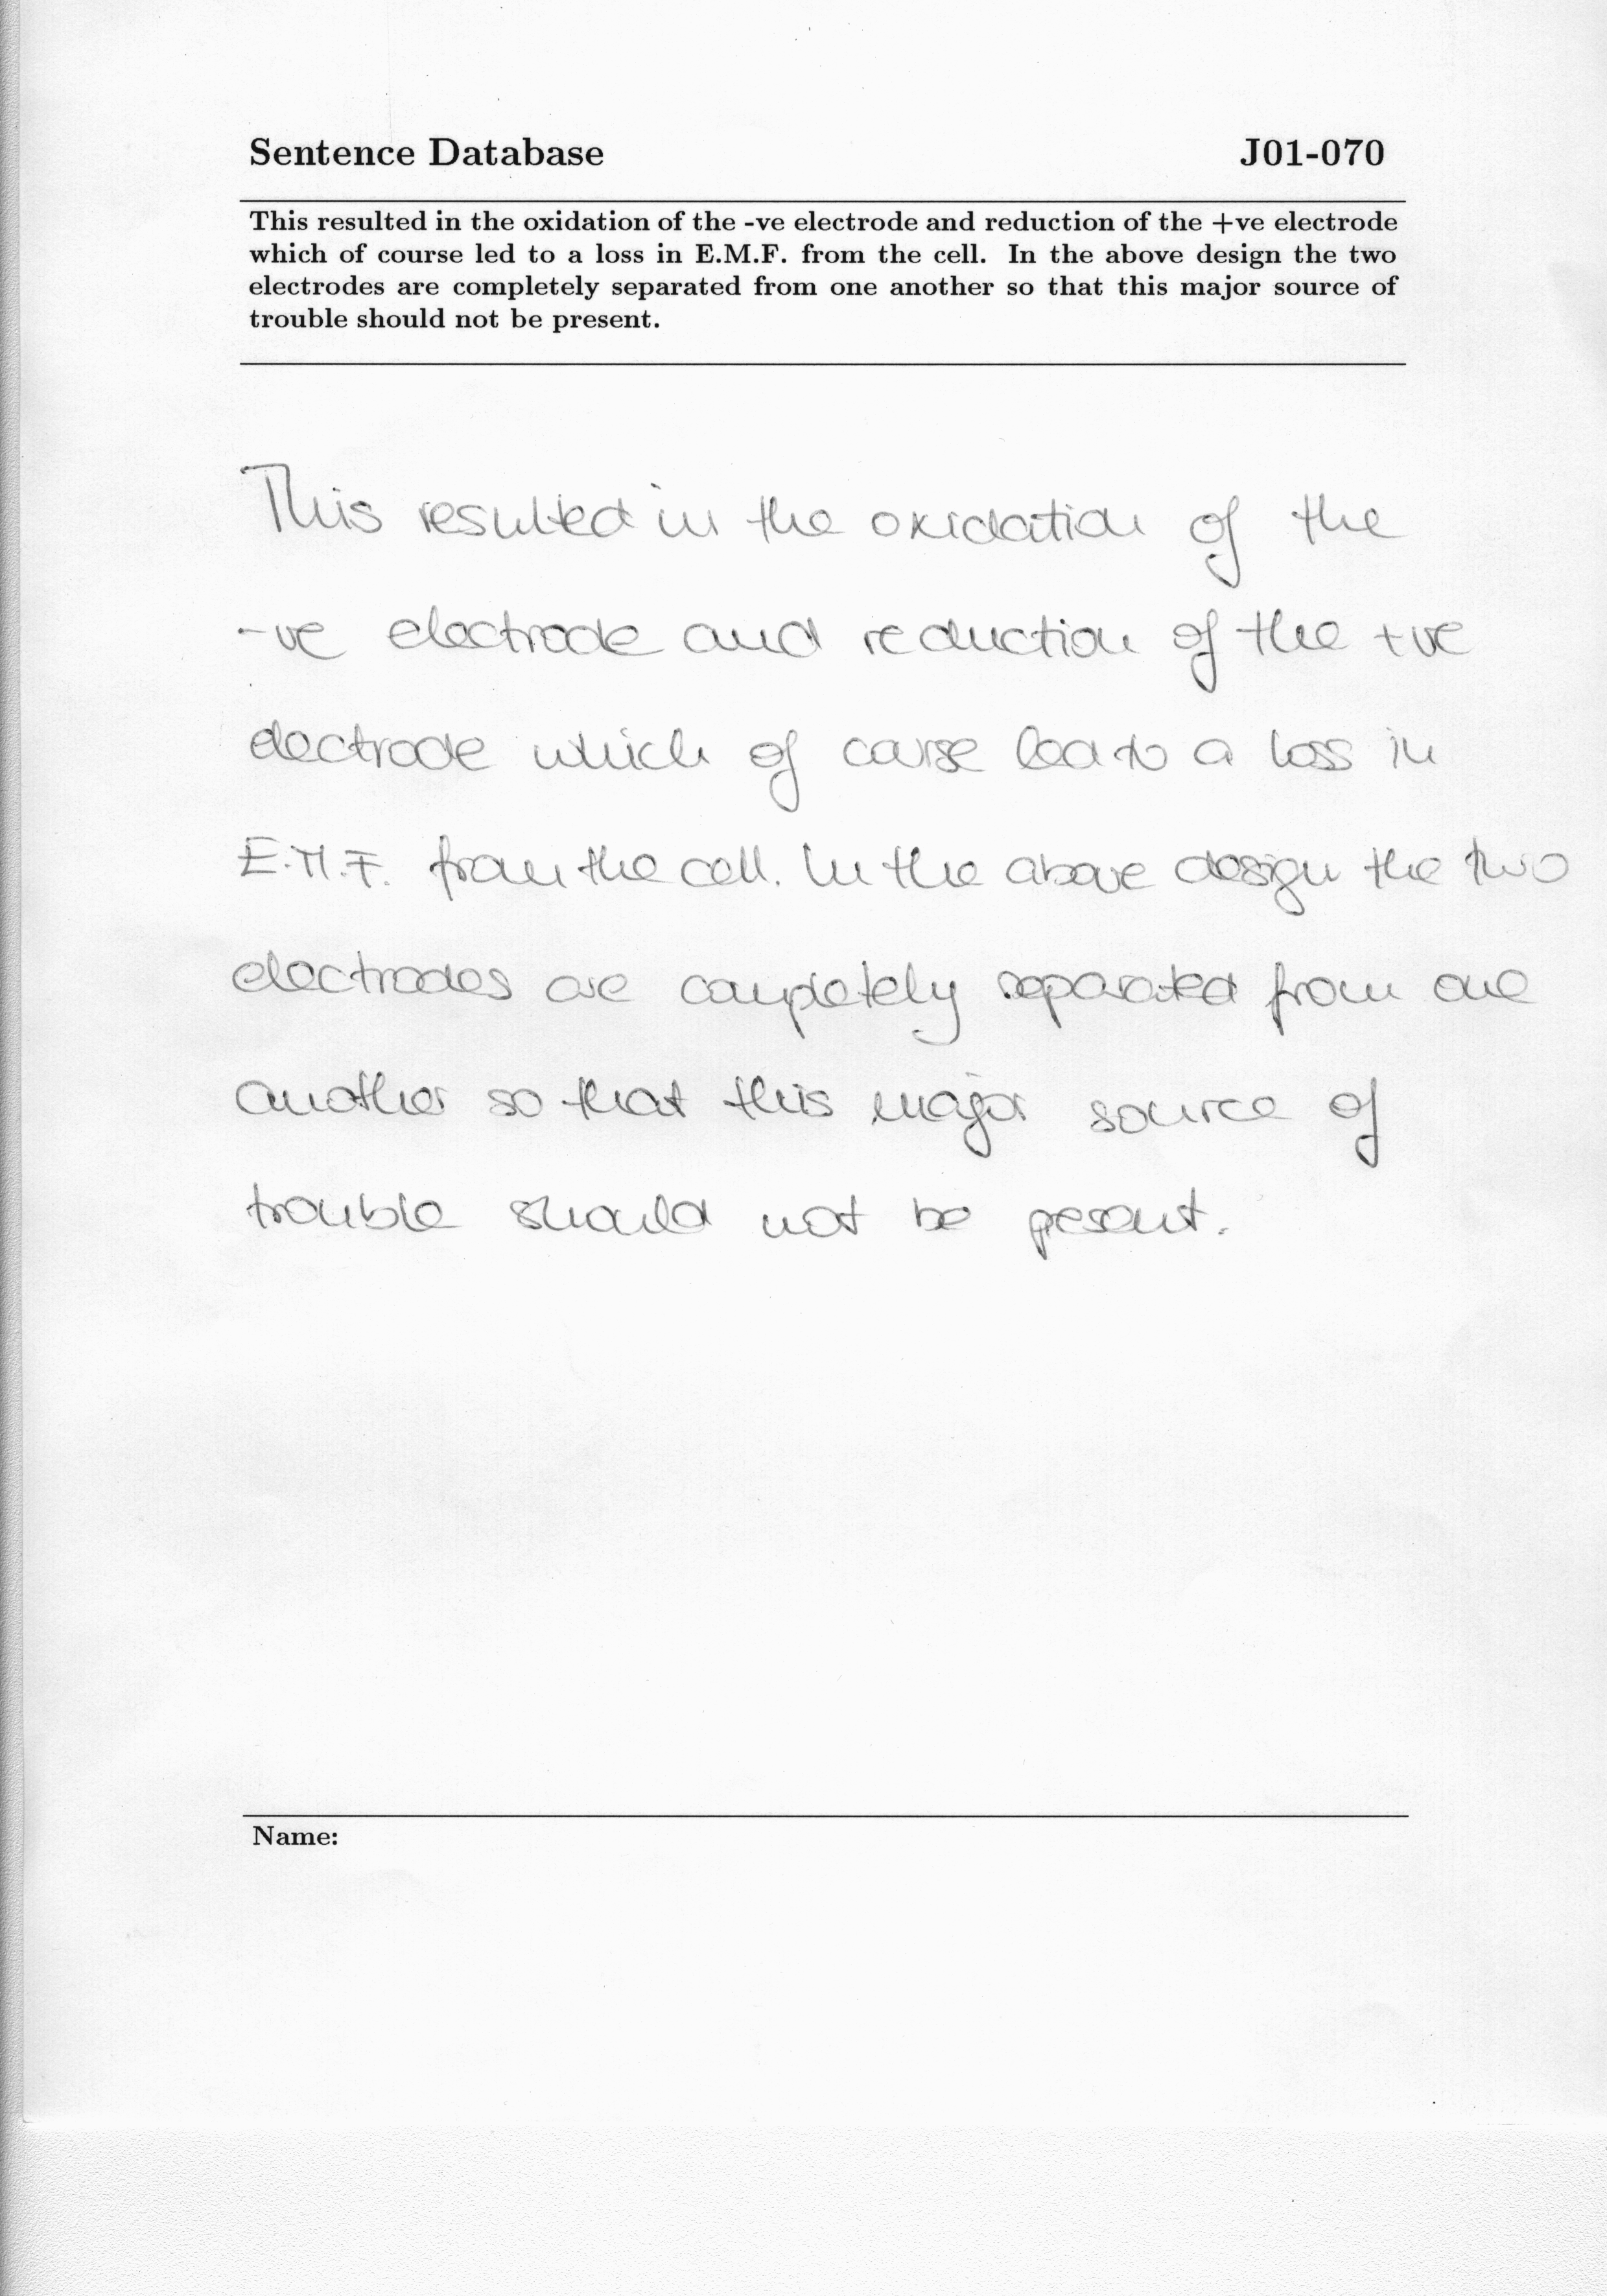 Sentence Database J01-070
This resulted in the oxidation of the -ve electrode and reduction of the +ve electrode
which of course led to a loss in E.M.F. from the cell. In the above design the two
electrodes are completely separated from one another so that this major source of
trouble should not be present.
This resulted in the oxidation of the
-ve electrode and reduction of the +ve
electrode which of course lead to a loss in
E.M.F. from the cell. In the above design the two
electrodes are completely separated from one
another so that this major source of
trouble should not be present.
Name: